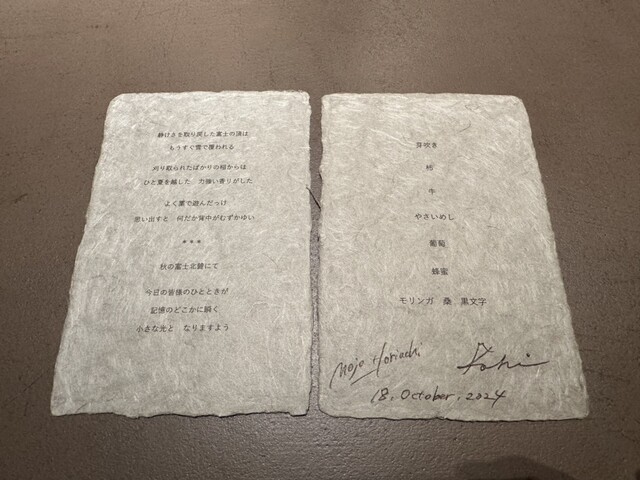 静けさを取り戻した富士の頂は
もうすぐ雪で覆われる
刈り取られたばかりの稲からは
ひと夏を越した　力強い香りがした
よく藁で遊んだっけ
思い出すと　何だか背中がむずかゆい
***
秋の富士北麓にて
今日の皆様のひとときが
記憶のどこかに瞬く
小さな光と　なりますよう
芽吹き
牛
やさいめし
葡萄
蜂蜜
モリンガ　桑　黒文字
Horiuchi
18, October, 2024